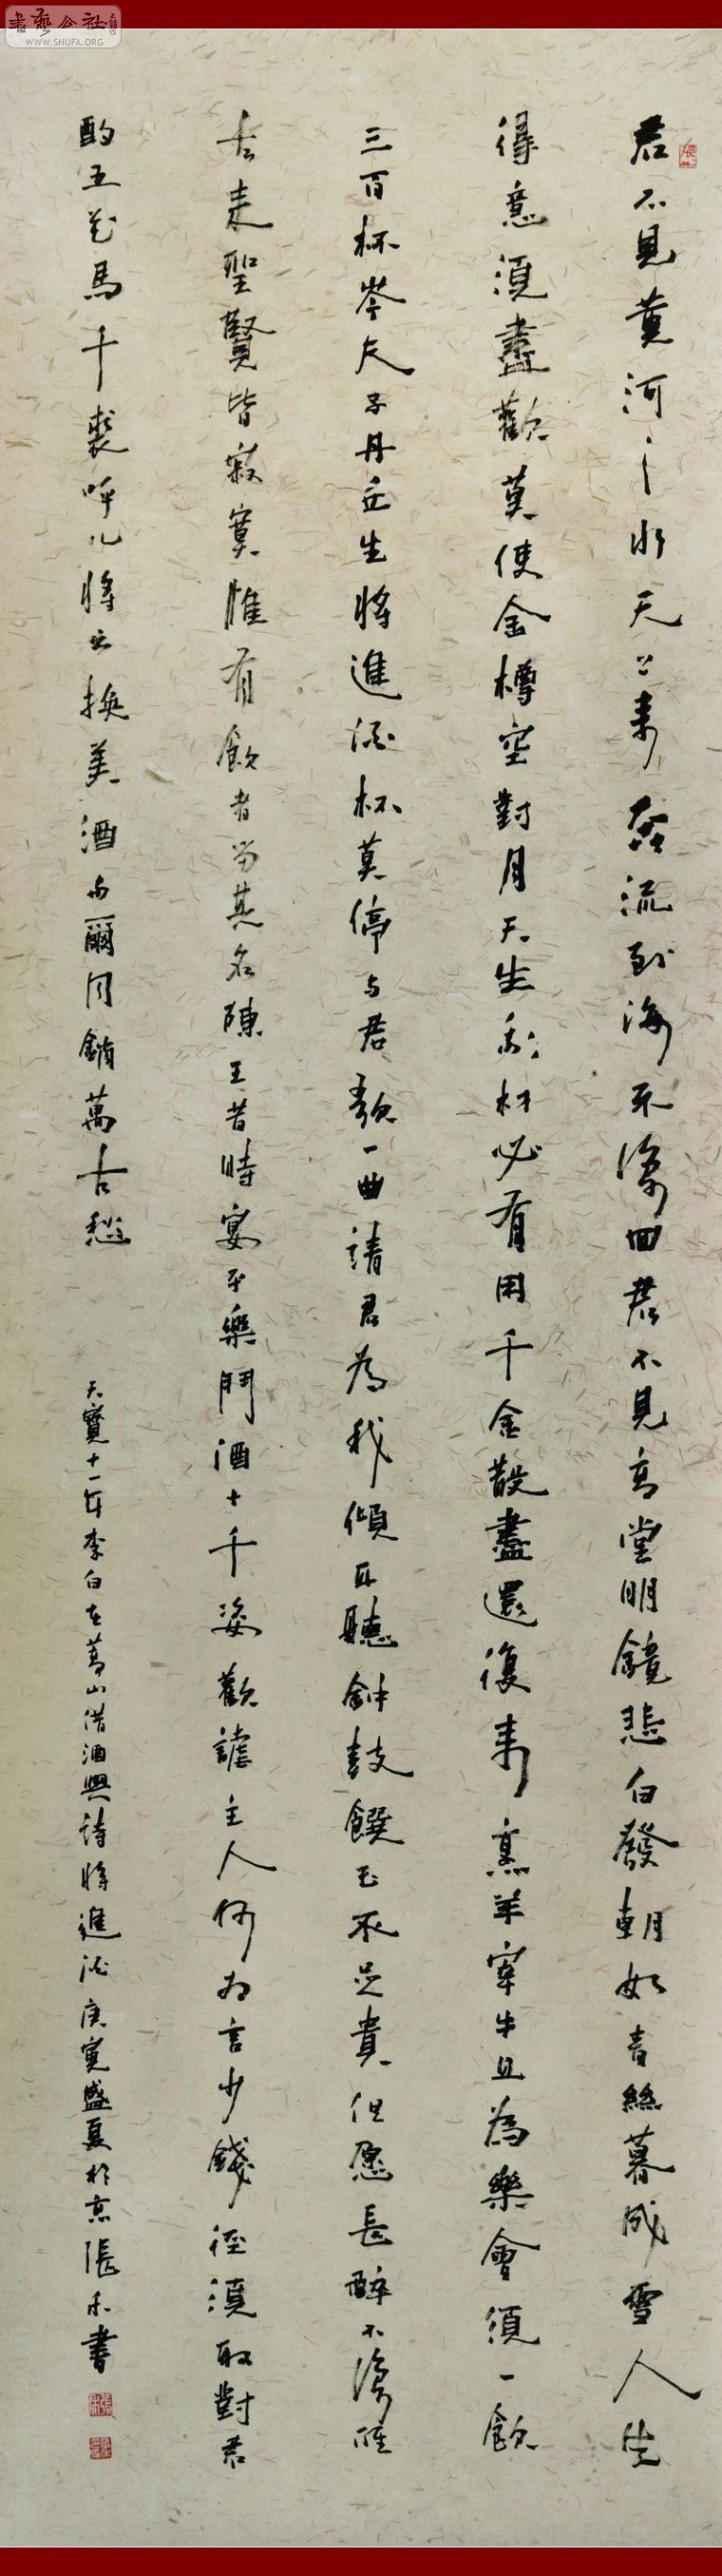 書藝公社
WWW.SHUFA.ORG
君不見黃河之水天上來奔流到海不復回君不見高堂明鏡悲白發朝如青絲暮成雪人生
得意須盡歡莫使金樽空對月天生我材必有用千金散盡還復來烹羊宰牛且為樂會須一飲
三百杯岑夫子丹丘生將進酒杯莫停与君歌一曲請君為我傾耳聽鈡鼓饌玉不足貴但愿長醉不復醒
古來聖賢皆寂寞惟有飲者留其名陳王昔時宴平樂鬥酒十千恣歡謔主人何為言少錢徑須取對君
酌五花馬千裘呼儿將出換美酒與爾同銷萬古愁
天寶十一年李白在嵩山借酒興詩將進酒庚寅盛夏於京張書